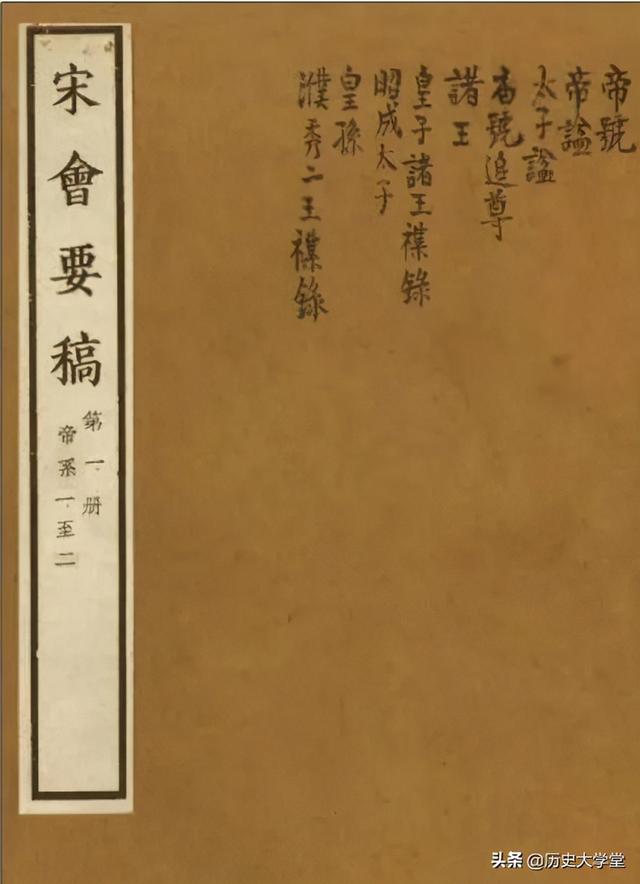 帝號
帝謚
太子謚
庙號追尊
諸王
皇子諸王襍錄
昭成太子
皇孫
濮秀二王襍錄
宋會要稿
第一册
帝系一至二
头条 @历史大学堂